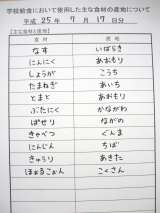 学校給食において使用した主な食材の産地について
平成 25年 7月 17日分
【主な食材と産地】
食材 産地
なす いばらき
にんにく あおもり
しょうが こうち
たまねぎ あいち
とまと あおもり
ぶたにく かながわ
ぱせり ながの
きゃべつ ぐんま
にんじん ちば
きゅうり あきた
ほぉるこぉん こくさん